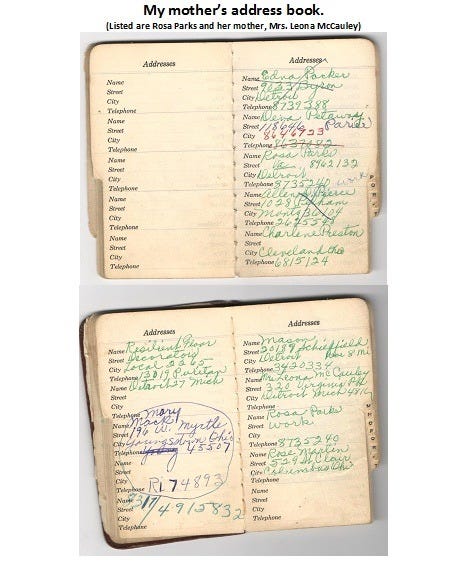 My mother's address book.
(Listed are Rosa Parks and her mother, Mrs. Leona McCauley)
Addresses
Name
Street
City
Telephone
Name
Street
City
Telephone
Name
Street
City
Telephone
Name
Street
City
Telephone
Name
Street
City
Telephone
Addresses
Name Edna Packer
Street Dyson
City Detroit
Telephone 8739288
Name
Street
City 8646923
Telephone
Name Rosa Parks
Street 8962132
City Detroit
Telephone 8735240 work
Name Pierce
Street 1028 Pelham
City Montg 36104
Telephone
Name Charlene Preston
Street
City Cleveland Ohio
Telephone 6815124
Addresses
Name Resilient Floor
Street Decorators
City Local 2265
Telephone Puritan
Name Detroit 27 Mich
Street
City
Telephone Mary
Name Mack
Street 196 W. Myrtle
City Youngstown Ohio
Telephone 45507
Name
Street
City
Telephone RI 74893
Name
Street 4915832
City
Telephone
Addresses
Name Mason
Street 20189
City Detroit
Telephone 3420332
Name Mrs Leona McCauley
Street Virginia Pk
City Detroit Mich
Telephone
Name Rosa Parks
Street work
City
Telephone 8735240
Name Rose Martin
Street 529 St Clair
City Columbus Ohio
Telephone
Name
Street
City
Telephone